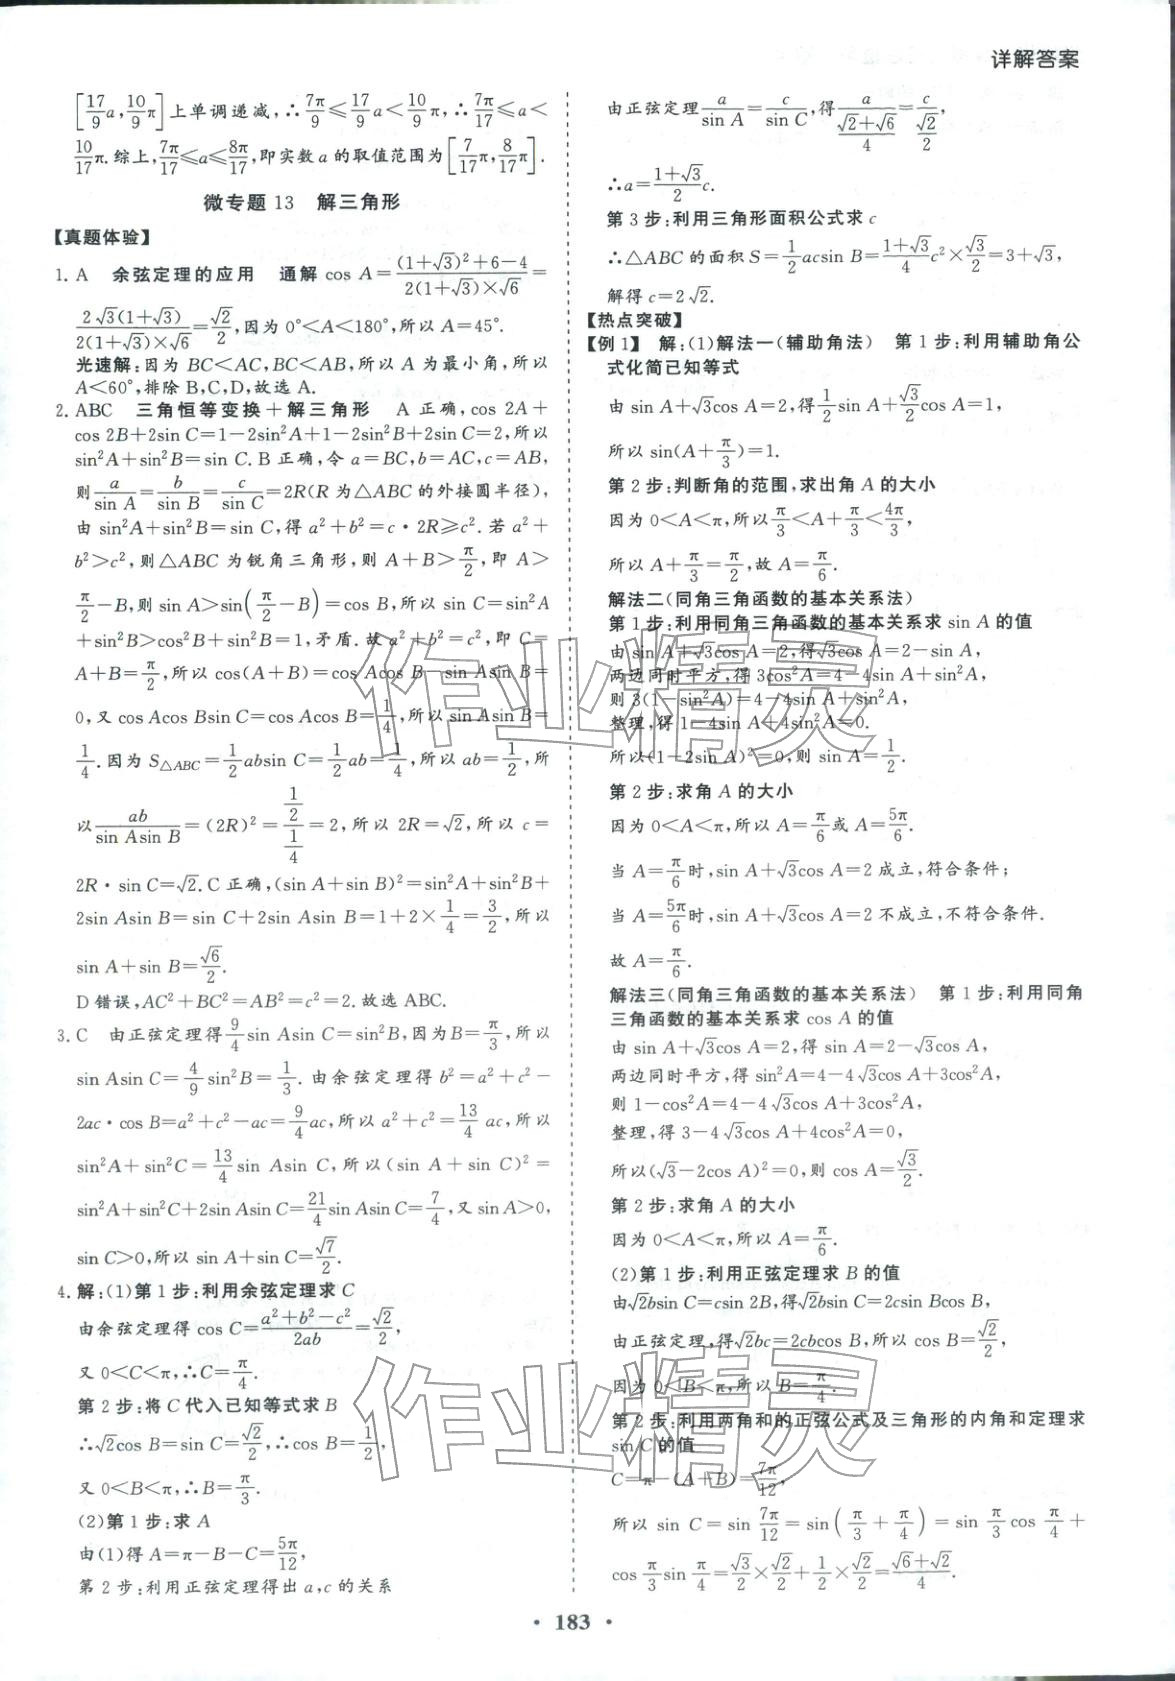 详解答案
[17/9 a, 10/9 π]上单调递减,∴7π/9≤17/9 a<10/9 π,∴7π/17≤a<
10/17 π.综上,7π/17≤a≤8π/17,即实数a的取值范围为[7/17 π, 8/17 π].
微专题13 解三角形
【真题体验】
1. A 余弦定理的应用 通解 cos A=((1+√3)²+6-4)/(2(1+√3)×√6)=
2√3(1+√3)/(2(1+√3)×√6)=√2/2,因为0°<A<180°,所以A=45°.
光速解:因为BC<AC,BC<AB,所以A为最小角,所以
A<60°,排除B,C,D,故选A.
2. ABC 三角恒等变换+解三角形 A正确,cos 2A+
cos 2B+2sin C=1-2sin²A+1-2sin²B+2sin C=2,所以
sin²A+sin²B=sin C.B正确,令a=BC,b=AC,c=AB,
则a/sin A=b/sin B=c/sin C=2R(R为△ABC的外接圆半径),
由sin²A+sin²B=sin C,得a²+b²=c·2R≥c².若a²+
b²>c²,则△ABC为锐角三角形,则A+B>π/2,即A>
π/2-B,则sin A>sin(π/2-B)=cos B,所以sin C=sin²A
+sin²B>cos²B+sin²B=1,矛盾.故a²+b²=c²,即C=
A+B=π/2,所以cos(A+B)=cos Acos B-sin Asin B=
0,又cos Acos Bsin C=cos Acos B=1/4,所以sin Asin B=
1/4.因为S△ABC=1/2 absin C=1/2 ab=1/4,所以ab=1/2,所
以ab/(sin Asin B)=(2R)²=(1/2)/(1/4)=2,所以2R=√2,所以c=
2R·sin C=√2.C正确,(sin A+sin B)²=sin²A+sin²B+
2sin Asin B=sin C+2sin Asin B=1+2×1/4=3/2,所以
sin A+sin B=√6/2.
D错误,AC²+BC²=AB²=c²=2.故选ABC.
3. C 由正弦定理得9/4 sin Asin C=sin²B,因为B=π/3,所以
sin Asin C=4/9 sin²B=1/3.由余弦定理得b²=a²+c²-
2ac·cos B=a²+c²-ac=9/4 ac,所以a²+c²=13/4 ac,所以
sin²A+sin²C=13/4 sin Asin C,所以(sin A+sin C)²=
sin²A+sin²C+2sin Asin C=21/4 sin Asin C=7/4,又sin A>0,
sin C>0,所以sin A+sin C=√7/2.
4. 解:(1)第1步:利用余弦定理求C
由余弦定理得cos C=(a²+b²-c²)/2ab=√2/2,
又0<C<π,∴C=π/4.
第2步:将C代入已知等式求B
∴√2cos B=sin C=√2/2,∴cos B=1/2,
又0<B<π,∴B=π/3.
(2)第1步:求A
由(1)得A=π-B-C=5π/12,
第2步:利用正弦定理得出a,c的关系
由正弦定理a/sin A=c/sin C,得a/((√2+√6)/4)=c/(√2/2),
∴a=(1+√3)/2 c.
第3步:利用三角形面积公式求c
∴△ABC的面积S=1/2 acsin B=(1+√3)/4 c²×√3/2=3+√3,
解得c=2√2.
【热点突破】
【例1】 解:(1)解法一(辅助角法) 第1步:利用辅助角公
式化简已知等式
由sin A+√3cos A=2,得1/2 sin A+√3/2 cos A=1,
所以sin(A+π/3)=1.
第2步:判断角的范围,求出角A的大小
因为0<A<π,所以π/3<A+π/3<4π/3,
所以A+π/3=π/2,故A=π/6.
解法二(同角三角函数的基本关系法)
第1步:利用同角三角函数的基本关系求sin A的值
由sin A+√3cos A=2,得√3cos A=2-sin A,
两边同时平方,得3cos²A=4-4sin A+sin²A,
则3(1-sin²A)=4-4sin A+sin²A,
整理,得1-4sin A+4sin²A=0.
所以(1-2sin A)²=0,则sin A=1/2.
第2步:求角A的大小
因为0<A<π,所以A=π/6或A=5π/6.
当A=π/6时,sin A+√3cos A=2成立,符合条件;
当A=5π/6时,sin A+√3cos A=2不成立,不符合条件.
故A=π/6.
解法三(同角三角函数的基本关系法) 第1步:利用同角
三角函数的基本关系求cos A的值
由sin A+√3cos A=2,得sin A=2-√3cos A,
两边同时平方,得sin²A=4-4√3cos A+3cos²A,
则1-cos²A=4-4√3cos A+3cos²A,
整理,得3-4√3cos A+4cos²A=0,
所以(√3-2cos A)²=0,则cos A=√3/2.
第2步:求角A的大小
因为0<A<π,所以A=π/6.
(2)第1步:利用正弦定理求B的值
由√2bsin C=csin 2B,得√2bsin C=2csin Bcos B,
由正弦定理,得√2bc=2cbcos B,所以cos B=√2/2,
因为0<B<π,所以B=π/4.
第2步:利用两角和的正弦公式及三角形的内角和定理求
sin C的值
C=π-(A+B)=7π/12,
所以sin C=sin 7π/12=sin(π/3+π/4)=sin π/3 cos π/4+
cos π/3 sin π/4=√3/2×√2/2+1/2×√2/2=(√6+√2)/4.
作业精灵
作业精灵
• 183 •